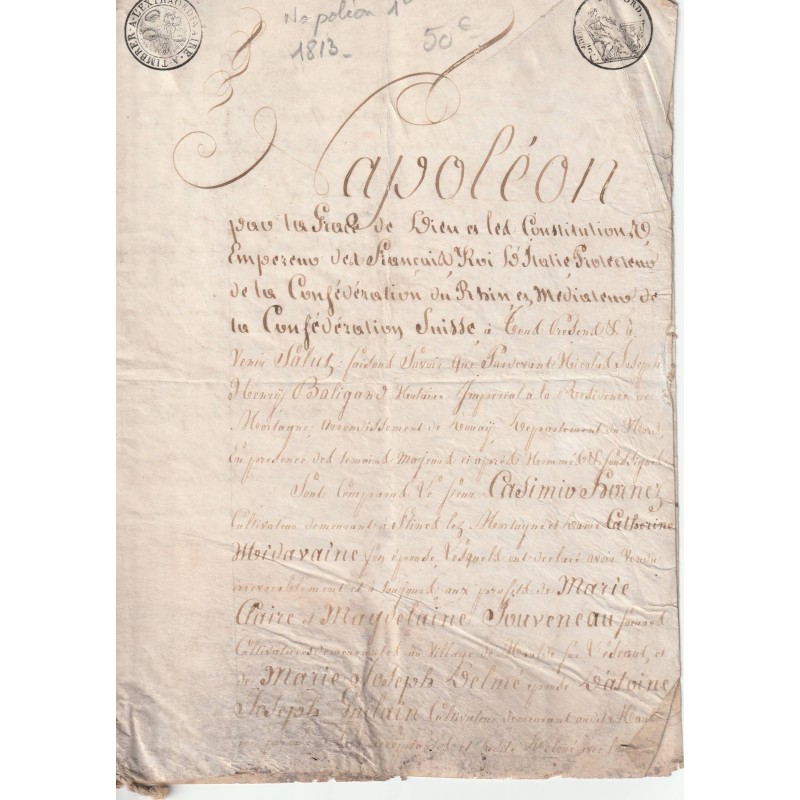 A TIMBRER A L'EXTRAORDINAIRE
Napoléon 1er
1813 -
50€
Napoléon
par la Grace de Dieu et les Constitutions
Empereur des Français Roi D'Italie Protecteur
de la Confédération du Rhin et Mediateur de
la Confédération Suisse à Tous Presens & à
Venir Salut : faisons Savoir que Pardevant Nicolas Joseph
Henry Boligand Notaire Imperial à la Residence de
Mortagne arrondissement de Douay Departement du Nord,
En presence des temoins Majeurs ci après Nommés & soussignés
Sont Comparus Le sieur Casimir Hornez
Cultivateur demeurant a Flines lez Mortagne et Dame Catherine
Midavaine son épouse, Lesquels ont declaré avoir Vendu
irrevocablement et à toujours aux profits de Marie
Claire et Magdelaine Jouveneau
Cultivatrices demeurantes au Village de et
de Marie Joseph Delmé épouse D'Antoine
Joseph Cultivateur demeurant audit